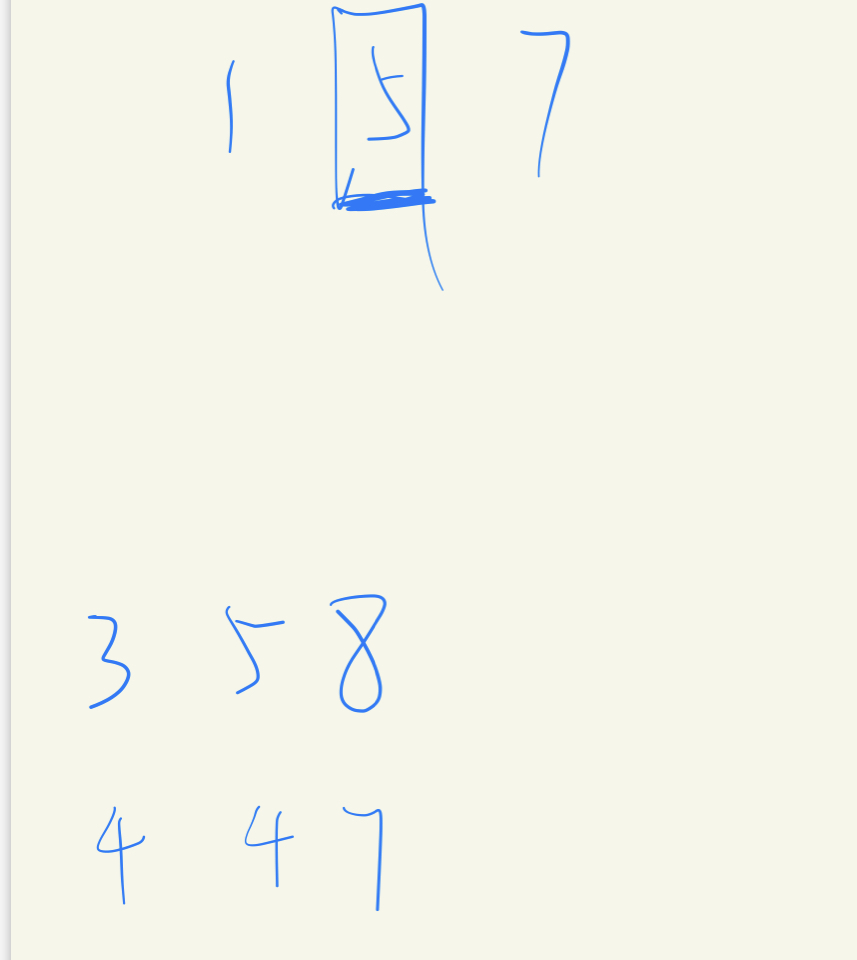 1 5 7
3 5 8
4 4 7